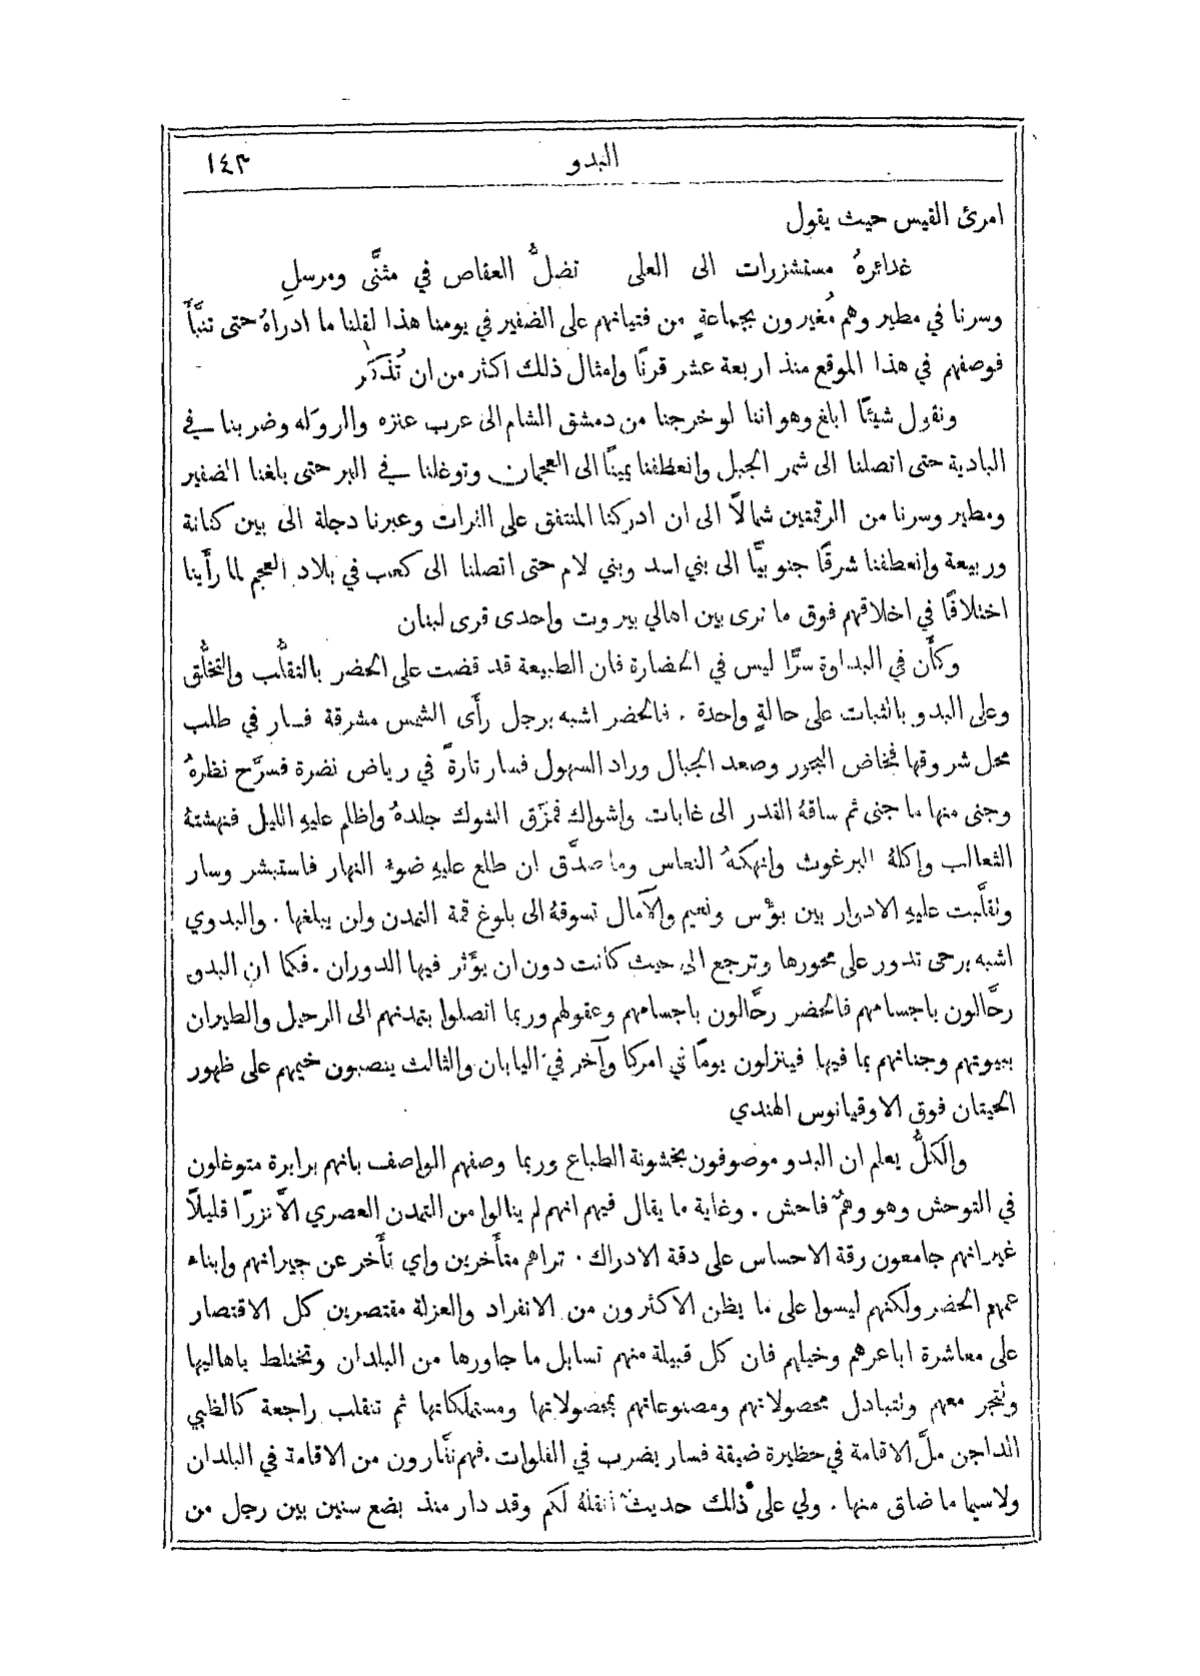 البدو
١٤٣
امرئ القيس حيث يقول
غدائرهُ مستشزرات الى العلى تضلُّ العقاص في مثنَّى ومرسلِ
وسرنا في مطير وهم مُغيرون بجماعةٍ من فتيانهم على الضفير في يومنا هذا لقلنا ما ادراهُ حتى تنبَّأَ
فوصفهم في هذا الموقع منذ اربعة عشر قرنًا وامثال ذلك اكثر من ان تُذكَر
ونقول شيئًا ابلغ وهو اننا لو خرجنا من دمشق الشام الى عرب عنزه والروَله وضربنا في
البادية حتى اتصلنا الى شمر الجبل وانعطفنا يمينًا الى العجمان وتوغلنا في البر حتى بلغنا الضفير
ومطير وسرنا من الرقمتين شمالاً الى ان ادركنا المنتفق على الفرات وعبرنا دجلة الى بين كنانة
وربيعة وانعطفنا شرقًا جنوبيًّا الى بني اسد وبني لام حتى اتصلنا الى كعب في بلاد العجم لما رأَينا
اختلافًا في اخلاقهم فوق ما نرى بين اهالي بيروت واحدى قرى لبنان
وكأَن في البداوة سرًّا ليس في الحضارة فان الطبيعة قد قضت على الحضر بالتقلُّب والتخلُّق
وعلى البدو بالثبات على حالةٍ واحدة . فالحضر اشبه برجل رأَى الشمس مشرقة فسار في طلب
محل شروقها فخاض البحور وصعد الجبال وراد السهول فسار تارةً في رياض نضرة فسرَّح نظرهُ
وجنى منها ما جنى ثم ساقهُ القدر الى غابات واشواك فمزَّق الشوك جلدهُ واظلم عليهِ الليل فنهشتهُ
الثعالب واكلهُ البرغوث وانهكهُ النعاس وما صدَّق ان طلع عليهِ ضوء النهار فاستبشر وسار
وتقلَّبت عليهِ الادوار بين بؤْس ونعيم والآمال تسوقهُ الى بلوغ قمة التمدن ولن يبلغها . والبدوي
اشبه برحى تدور على محورها وترجع الى حيث كانت دون ان يؤَثر فيها الدوران . فكما ان البدو
رحَّالون باجسامهم فالحضر رحَّالون باجسامهم وعقولهم وربما اتصلوا بتمدنهم الى الرحيل والطيران
ببيوتهم وجناتهم بما فيها فينزلون يومًا في امركا وآخر في اليابان والثالث ينصبون خيمهم على ظهور
الحيتان فوق الاوقيانوس الهندي
والكلُّ يعلم ان البدو موصوفون بخشونة الطباع وربما وصفهم الواصف بانهم برابرة متوغلون
في التوحش وهو وهمٌ فاحش . وغاية ما يقال فيهم انهم لم ينالوا من التمدن العصري الاَّ نزرًا قليلاً
غير انهم جامعون رقة الاحساس على دقة الادراك . تراهم متأَخرين واي تأَخر عن جيرانهم وابناء
عمهم الحضر ولكنهم ليسوا على ما يظن الاكثرون من الانفراد والعزلة مقتصرين كل الاقتصار
على معاشرة اباعرهم وخيلهم فان كل قبيلة منهم تسابل ما جاورها من البلدان وتختلط باهاليها
وتتجر معهم وتتبادل محصولاتهم ومصنوعاتهم بمحصولاتها ومستملكاتها ثم تنقلب راجعة كالظبي
الداجن ملَّ الاقامة في حظيرة ضيقة فسار يضرب في الفلوات . فهم نفَّارون من الاقامة في البلدان
ولاسيما ما ضاق منها . ولي على ذلك حديثٌ انقلهُ لكم وقد دار منذ بضع سنين بين رجل من